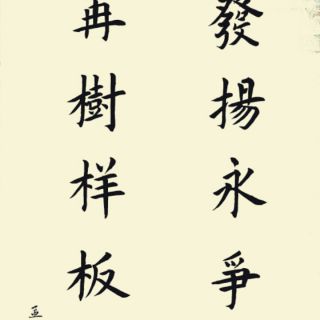 發揚永爭
再樹样板